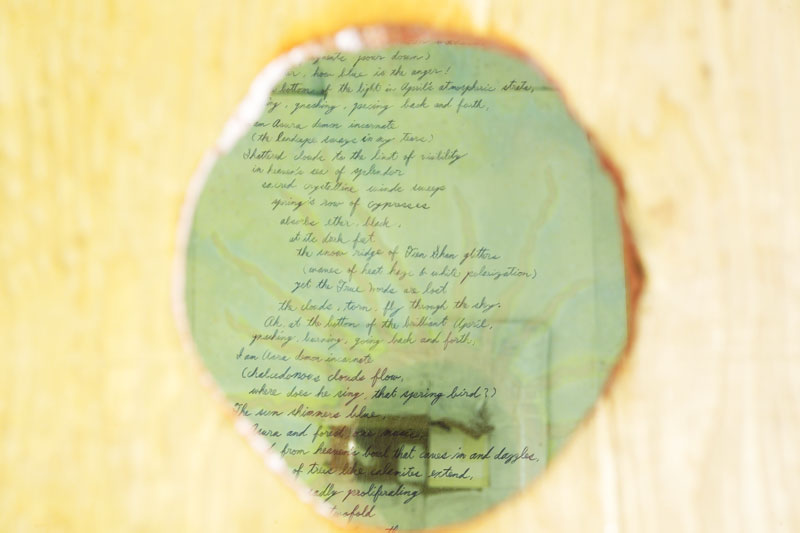 pours down)
how blue is the anger!
bottom of the light in April's atmospheric strata,
gnashing, pacing back and forth,
an Asura demon incarnate
(the landscape sways in my tears)
Shattered clouds to the limit of visibility
in heaven's sea of splendor
sacred crystalline winds sweep
spring's row of cypresses
absorbs ether, black,
at its dark feet
the snow ridge of Tien Shan glitters
(waves of heat haze & white polarization)
yet the True Words are lost
the clouds, torn, fly through the sky.
Ah, at the bottom of the brilliant April,
gnashing, burning, going back and forth,
I am Asura demon incarnate
(chalcedonous clouds flow,
where does he sing, that spring bird?)
The sun shimmers blue,
Asura and forest, one music
from heaven's bowl that caves in and dazzles,
of trees like calamites extend,
proliferating